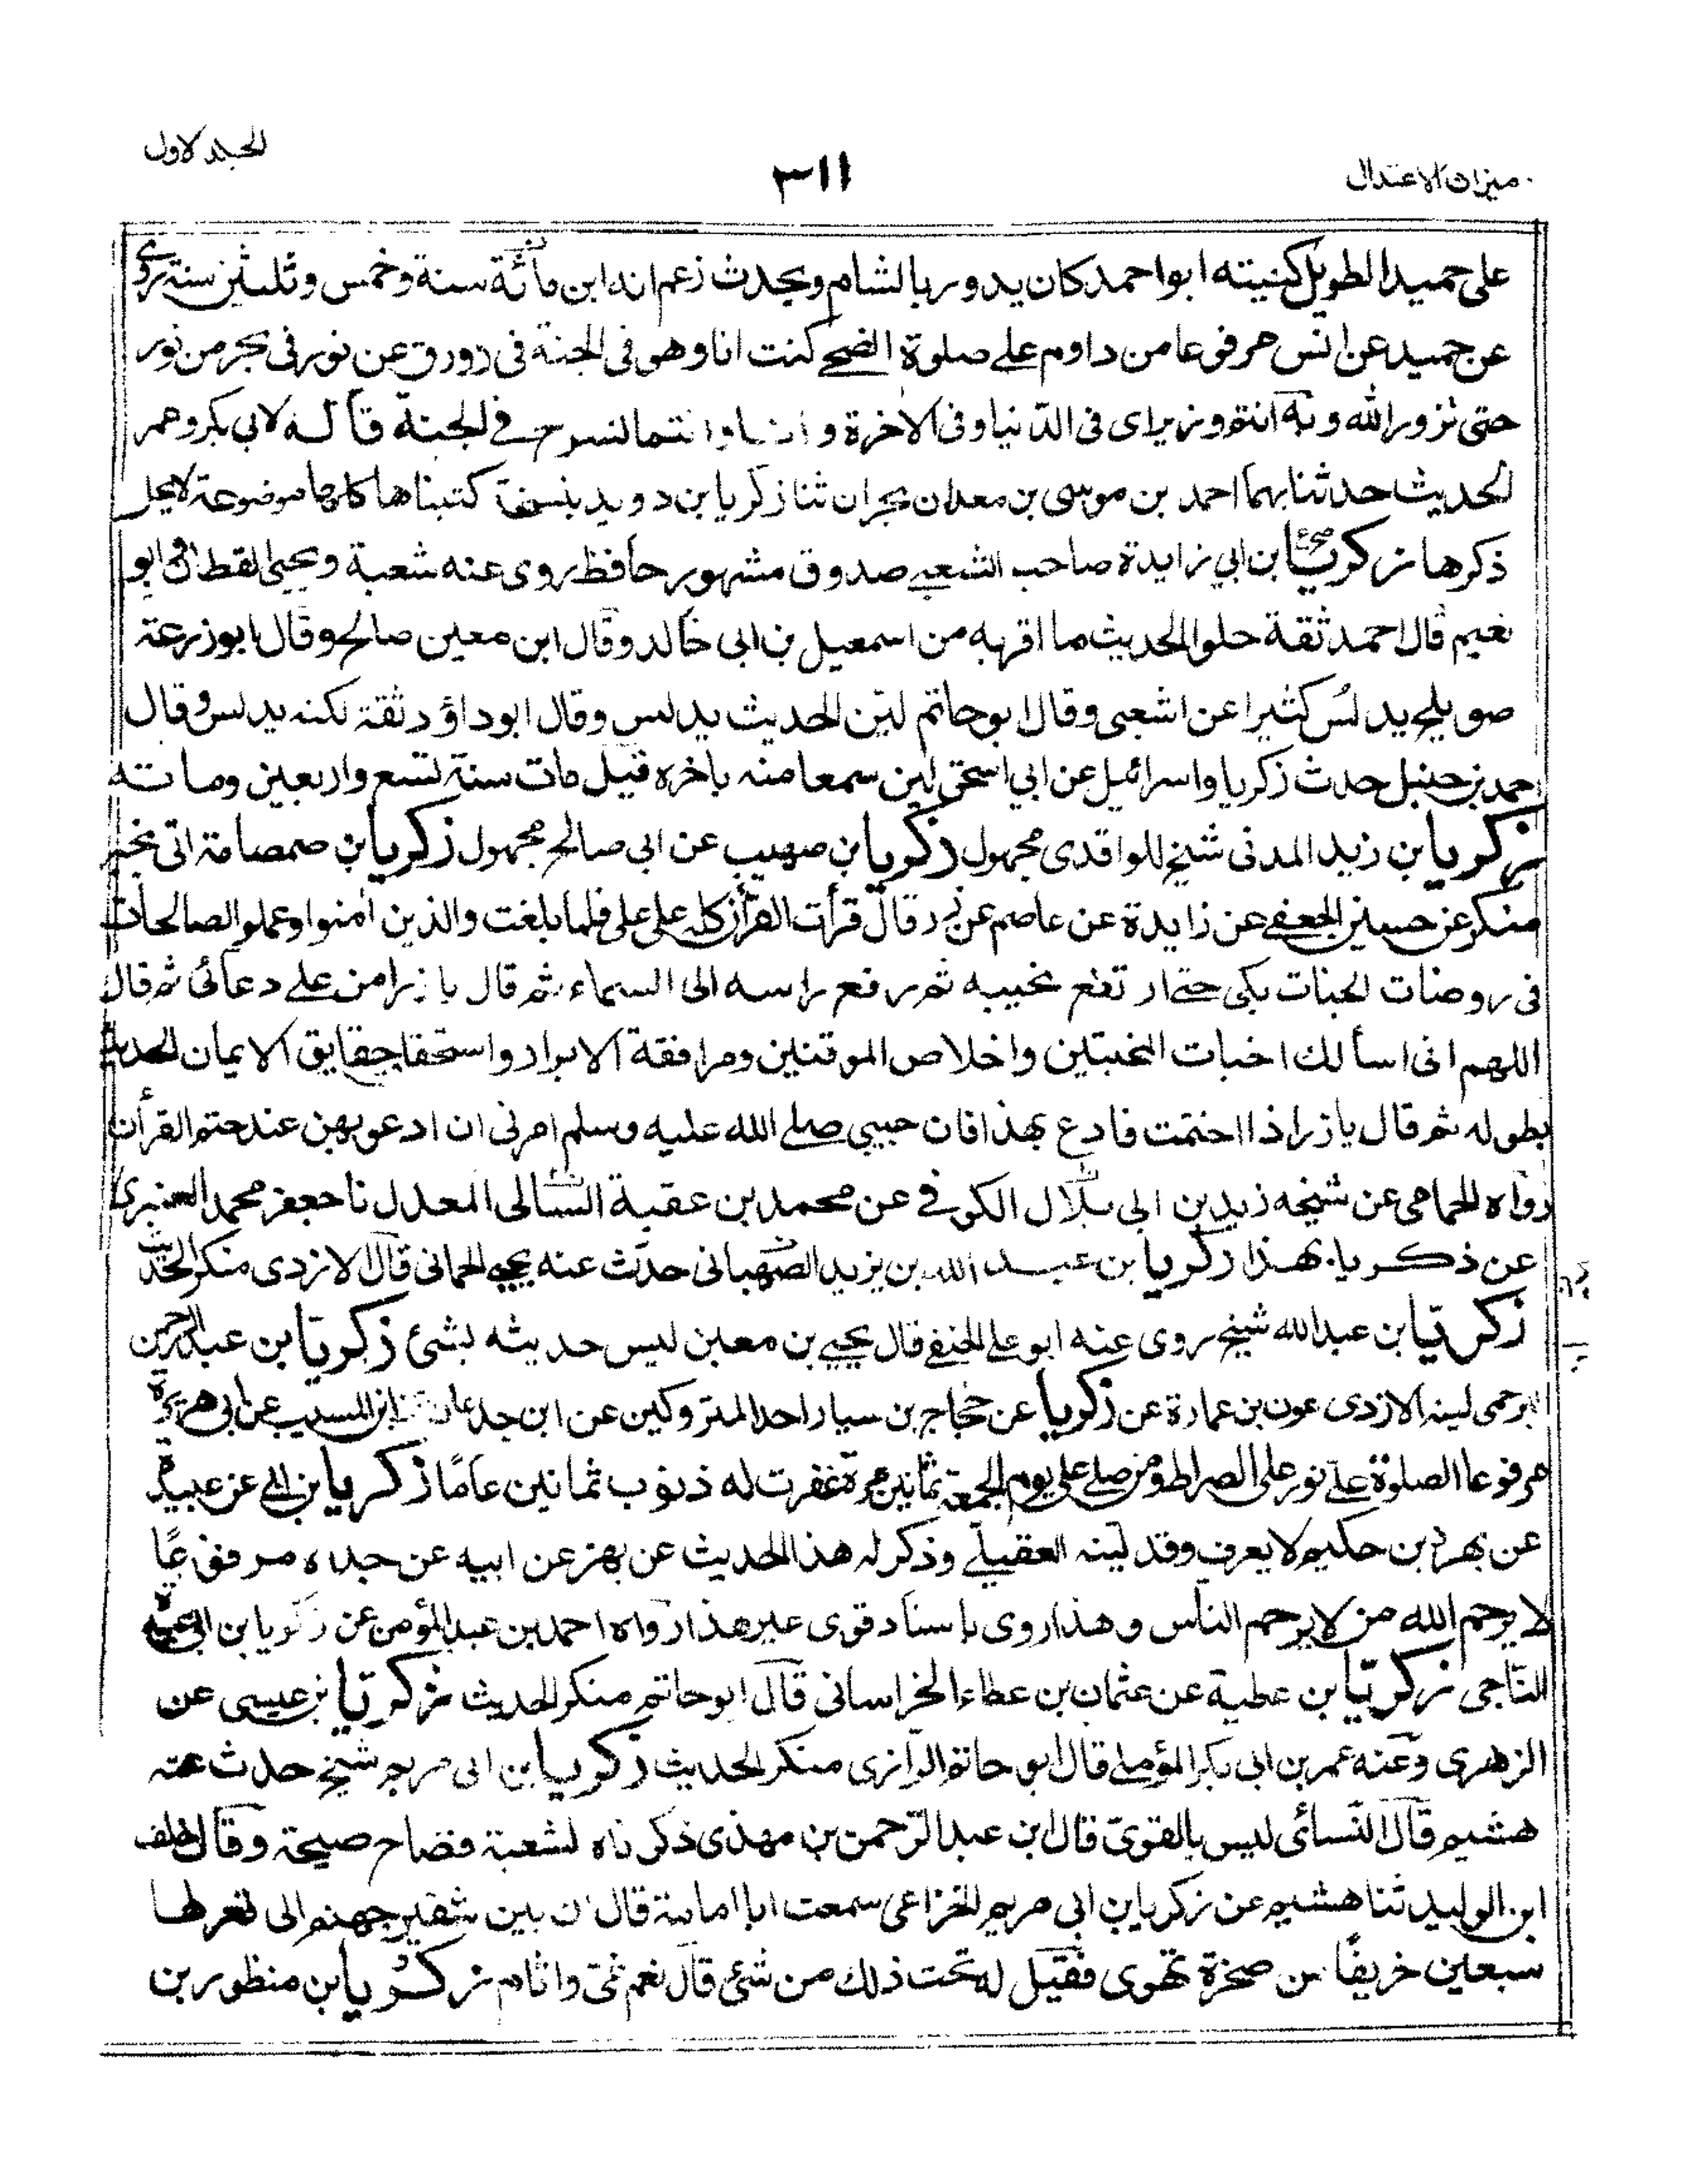 ميزان الاعتدال
٣١١
المجلد الاول
على حميد الطويل كنيته ابو احمد كان يدور بالشام ويحدث زعم انه ابن مائة سنة وخمس وثلثين سنة يروى
عن حميد عن انس مرفوعا من داوم على صلوة الضحى كنت انا وهو فى الجنة فى زورق عن نور فى بحر من نور
حتى نزور الله وبه انتم وزيراى فى الدنيا وفى الاخرة و انتما لنسرح فى الجنة قاله لابي بكر وعمر
الحديث حدثنا بهما احمد بن موسى بن معدان بحران ثنا زكريا بن دويد بنسخة كتبناها كلها موضوعة لا يحل
ذكرها زكريا صح بن ابي زايدة صاحب الشعبى صدوق مشهور حافظ روى عنه شعبة ويحيى القطان وابو
نعيم قال احمد ثقة حلو الحديث ما اقربه من اسمعيل بن ابى خالد وقال ابن معين صالح وقال ابو زرعة
صويلح يدلس كثيرا عن اشعبى وقال ابو حاتم لين الحديث يدلس وقال ابو داؤد ثقة لكنه يدلس وقال
احمد بن حنبل حدث زكريا واسرائيل عن ابي اسحق لين سمعا منه باخره قيل مات سنة تسع واربعين ومائة
زكريا بن زيد المدنى شيخ للواقدى مجهول زكريا بن صهيب عن ابى صالح مجهول زكريا بن صمصامة اتى بخبر
منكر عن حسين الجعفى عن زايدة عن عاصم عن زر قال قرأت القرأن كله على على فلما بلغت والذين امنوا وعملو الصالحات
فى روضات الجنات بكى حتى ارتفع نحيبه ثم رفع راسه الى السماء ثم قال يا زر امن على دعائى ثم قال
اللهم انى اسألك اخبات المخبتين واخلاص الموقنين ومرافقة الابرار واستحقاق حقايق الايمان الحديث
بطوله ثم قال يا زر اذا اختمت فادع بهذا فان حبيبي صلى الله عليه وسلم امرنى ان ادعو بهن عند ختم القرأن
رواه الحمامى عن شيخه زيد بن ابى بلال الكوفى عن محمد بن عقبة الشيبانى المعدل نا جعفر محمد العنبرى
عن ذكريا بهذا زكريا بن عبد الله بن يزيد الصهبانى حدث عنه يحيى الحمانى قال الازدى منكر الحديث
زكريا بن عبد الله شيخ روى عنه ابو على الحنفى قال يحيى بن معين ليس حديثه بشئ زكريا بن عبد الرحمن
البرجمى لينه الازدى عون بن عمارة عن زكريا عن حجاج بن سيار احد المتروكين عن ابن جدعان عن ابن المسيب عن ابى هريرة
مرفوعا الصلوة على نور على الصراط ومن صلى على يوم الجمعة ثمانين مرة غفرت له ذنوب ثمانين عاما زكريا بن ابى عبيدة
عن بهز بن حكيم لا يعرف وقد لينه العقيلى وذكر له هذا الحديث عن بهز عن ابيه عن جده مرفوعا
لا يرحم الله من لا يرحم الناس وهذا روى باسناد قوى غير هذا رواه احمد بن عبد المؤمن عن زكريا بن ابى عبيدة
الناجى زكريا بن عطية عن عثمان بن عطاء الخراسانى قال ابو حاتم منكر الحديث زكريا بن عيسى عن
الزهرى وعنه عمر بن ابى بكر المؤملى قال ابو حاتم الرازى منكر الحديث زكريا بن ابى مريم شيخ حدث عنه
هشيم قال النسائى ليس بالقوى قال ابن عبد الرحمن بن مهدى ذكرناه لشعبة فصاح صيحة وقال خلف
ابن الوليد ثنا هشيم عن زكريا بن ابي مريم الخزاعى سمعت ابا امامة قال ان بين شفير جهنم الى قعرها
سبعين خريفا من صخرة تهوى فقيل له تحت ذلك من شئ قال نعم غى واثام زكريا بن منظور بن